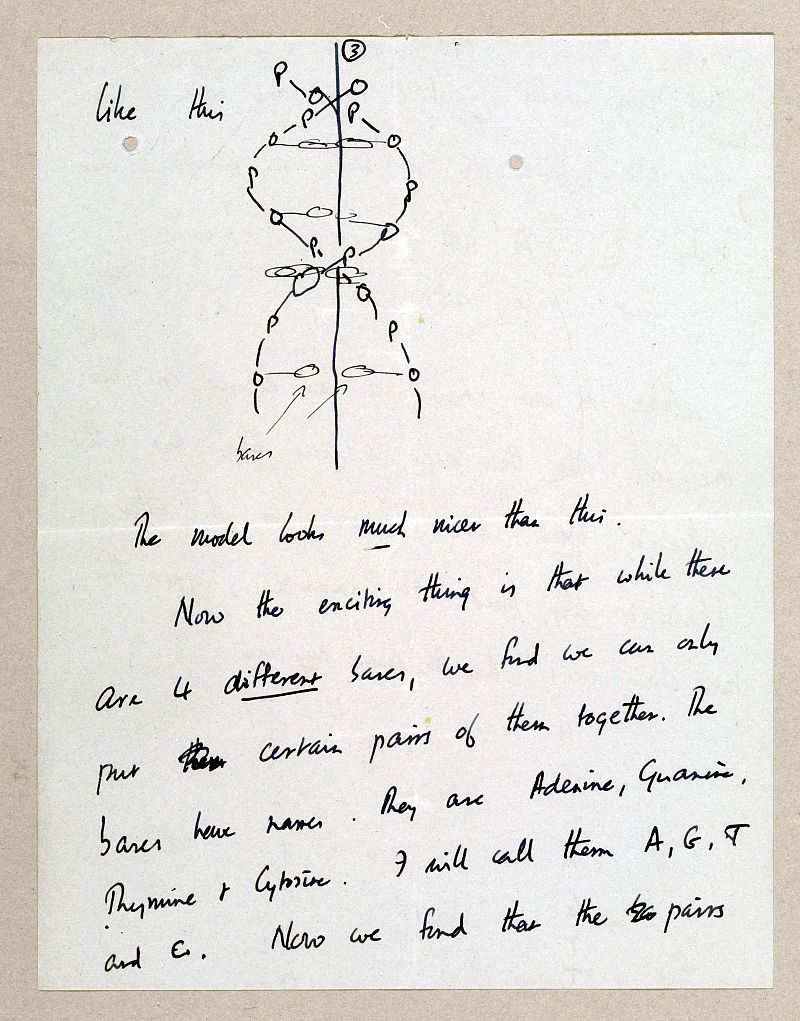 ③
like this
P
O
O
P
P
O
O
P
P
O
O
P
P
O
O
P
P
O
O
bases
The model looks much nicer than this.
Now the exciting thing is that while there
are 4 different bases, we find we can only
put certain pairs of them together. The
bases have names. They are Adenine, Guanine,
Thymine & Cytosine. I will call them A, G, T
and C. Now we find that the pairs